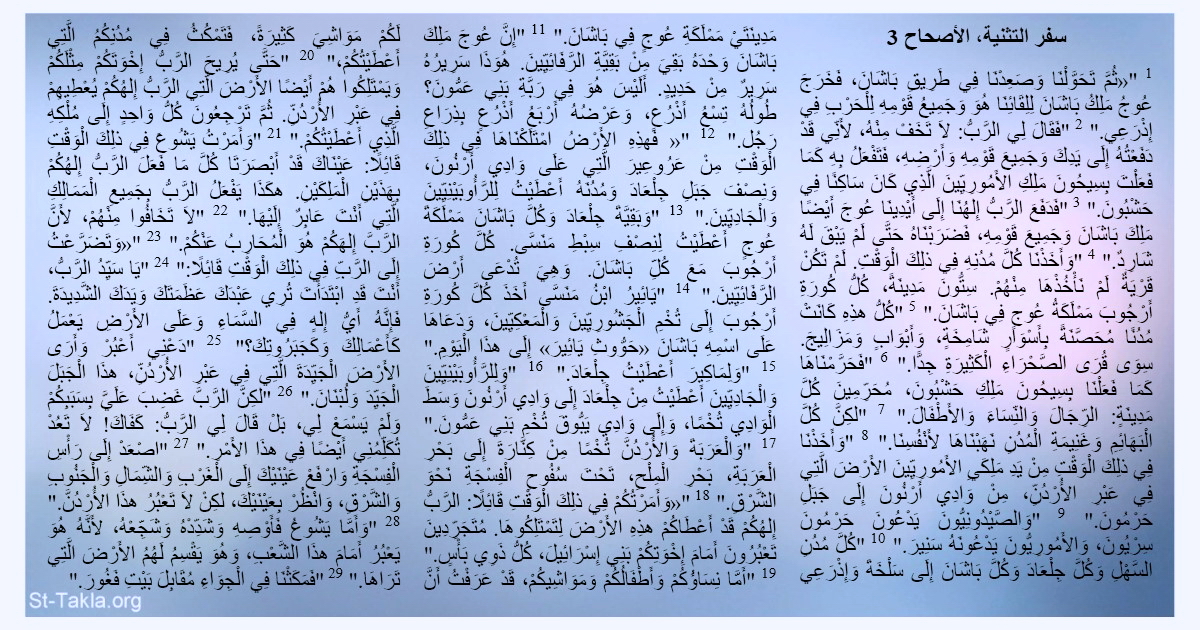 سفر التثنية، الأصحاح 3
1 "«ثُمَّ تَحَوَّلْنَا وَصَعِدْنَا فِي طَرِيقِ بَاشَانَ، فَخَرَجَ
عُوجُ مَلِكُ بَاشَانَ لِلِقَائِنَا هُوَ وَجَمِيعُ قَوْمِهِ لِلْحَرْبِ فِي
إِذْرَعِي." 2 "فَقَالَ لِي الرَّبُّ: لاَ تَخَفْ مِنْهُ، لأَنِّي قَدْ
دَفَعْتُهُ إِلَى يَدِكَ وَجَمِيعَ قَوْمِهِ وَأَرْضِهِ، فَتَفْعَلُ بِهِ كَمَا
فَعَلْتَ بِسِيحُونَ مَلِكِ الأَمُورِيِّينَ الَّذِي كَانَ سَاكِنًا فِي
حَشْبُونَ." 3 "فَدَفَعَ الرَّبُّ إِلهُنَا إِلَى أَيْدِينَا عُوجَ أَيْضًا
مَلِكَ بَاشَانَ وَجَمِيعَ قَوْمِهِ، فَضَرَبْنَاهُ حَتَّى لَمْ يَبْقَ لَهُ
شَارِدٌ." 4 "وَأَخَذْنَا كُلَّ مُدُنِهِ فِي ذلِكَ الْوَقْتِ. لَمْ تَكُنْ
قَرْيَةٌ لَمْ نَأْخُذْهَا مِنْهُمْ. سِتُّونَ مَدِينَةً، كُلُّ كُورَةِ
أَرْجُوبَ مَمْلَكَةُ عُوجٍ فِي بَاشَانَ." 5 "كُلُّ هذِهِ كَانَتْ
مُدُنًا مُحَصَّنَةً بِأَسْوَارٍ شَامِخَةٍ، وَأَبْوَابٍ وَمَزَالِيجَ.
سِوَى قُرَى الصَّحْرَاءِ الْكَثِيرَةِ جِدًّا." 6 "فَحَرَّمْنَاهَا
كَمَا فَعَلْنَا بِسِيحُونَ مَلِكِ حَشْبُونَ، مُحَرِّمِينَ كُلَّ
مَدِينَةٍ: الرِّجَالَ وَالنِّسَاءَ وَالأَطْفَالَ." 7 "لكِنَّ كُلَّ
الْبَهَائِمِ وَغَنِيمَةِ الْمُدُنِ نَهَبْنَاهَا لأَنْفُسِنَا." 8 "وَأَخَذْنَا
فِي ذلِكَ الْوَقْتِ مِنْ يَدِ مَلِكَيِ الأَمُورِيِّينَ الأَرْضَ الَّتِي
فِي عَبْرِ الأُرْدُنِّ، مِنْ وَادِي أَرْنُونَ إِلَى جَبَلِ
حَرْمُونَ." 9 "وَالصَّيْدُونِيُّونَ يَدْعُونَ حَرْمُونَ
سِرْيُونَ، وَالأَمُورِيُّونَ يَدْعُونَهُ سَنِيرَ." 10 "كُلَّ مُدُنِ
السَّهْلِ وَكُلَّ جِلْعَادَ وَكُلَّ بَاشَانَ إِلَى سَلْخَةَ وَإِذْرَعِي
مَدِينَتَيْ مَمْلَكَةِ عُوجٍ فِي بَاشَانَ." 11 "إِنَّ عُوجَ مَلِكَ
بَاشَانَ وَحْدَهُ بَقِيَ مِنْ بَقِيَّةِ الرَّفَائِيِّينَ. هُوَذَا سَرِيرُهُ
سَرِيرٌ مِنْ حَدِيدٍ. أَلَيْسَ هُوَ فِي رَبَّةِ بَنِي عَمُّونَ؟
طُولُهُ تِسْعُ أَذْرُعٍ، وَعَرْضُهُ أَرْبَعُ أَذْرُعٍ بِذِرَاعِ
رَجُل." 12 "« فَهذِهِ الأَرْضُ امْتَلَكْنَاهَا فِي ذلِكَ
الْوَقْتِ مِنْ عَرُوعِيرَ الَّتِي عَلَى وَادِي أَرْنُونَ،
وَنِصْفَ جَبَلِ جِلْعَادَ وَمُدُنَهُ أَعْطَيْتُ لِلرَّأُوبَيْنِيِّينَ
وَالْجَادِيِّينَ." 13 "وَبَقِيَّةَ جِلْعَادَ وَكُلَّ بَاشَانَ مَمْلَكَةَ
عُوجٍ أَعْطَيْتُ لِنِصْفِ سِبْطِ مَنَسَّى. كُلَّ كُورَةِ
أَرْجُوبَ مَعَ كُلِّ بَاشَانَ. وَهِيَ تُدْعَى أَرْضَ
الرَّفَائِيِّينَ." 14 "يَائِيرُ ابْنُ مَنَسَّى أَخَذَ كُلَّ كُورَةِ
أَرْجُوبَ إِلَى تُخْمِ الْجَشُورِيِّينَ وَالْمَعْكِيِّينَ، وَدَعَاهَا
عَلَى اسْمِهِ بَاشَانَ «حَوُّوثِ يَائِيرَ» إِلَى هذَا الْيَوْمِ."
15 "وَلِمَاكِيرَ أَعْطَيْتُ جِلْعَادَ." 16 "وَلِلرَّأُوبَيْنِيِّينَ
وَالْجَادِيِّينَ أَعْطَيْتُ مِنْ جِلْعَادَ إِلَى وَادِي أَرْنُونَ وَسَطَ
الْوَادِي تُخْمًا، وَإِلَى وَادِي يَبُّوقَ تُخْمِ بَنِي عَمُّونَ."
17 "وَالْعَرَبَةَ وَالأُرْدُنَّ تُخْمًا مِنْ كِنَّارَةَ إِلَى بَحْرِ
الْعَرَبَةِ، بَحْرِ الْمِلْحِ، تَحْتَ سُفُوحِ الْفِسْجَةِ نَحْوَ
الشَّرْقِ." 18 "«وَأَمَرْتُكُمْ فِي ذلِكَ الْوَقْتِ قَائِلًا: الرَّبُّ
إِلهُكُمْ قَدْ أَعْطَاكُمْ هذِهِ الأَرْضَ لِتَمْتَلِكُوهَا. مُتَجَرِّدِينَ
تَعْبُرُونَ أَمَامَ إِخْوَتِكُمْ بَنِي إِسْرَائِيلَ، كُلُّ ذَوِي بَأْسٍ."
19 "أَمَّا نِسَاؤُكُمْ وَأَطْفَالُكُمْ وَمَوَاشِيكُمْ، قَدْ عَرَفْتُ أَنَّ
لَكُمْ مَوَاشِيَ كَثِيرَةً، فَتَمْكُثُ فِي مُدُنِكُمُ الَّتِي
أَعْطَيْتُكُمْ،" 20 "حَتَّى يُرِيحَ الرَّبُّ إِخْوَتَكُمْ مِثْلَكُمْ
وَيَمْتَلِكُوا هُمْ أَيْضًا الأَرْضَ الَّتِي الرَّبُّ إِلهُكُمْ يُعْطِيهِمْ
فِي عَبْرِ الأُرْدُنِّ. ثُمَّ تَرْجِعُونَ كُلُّ وَاحِدٍ إِلَى مُلْكِهِ
الَّذِي أَعْطَيْتُكُمْ." 21 "وَأَمَرْتُ يَشُوعَ فِي ذلِكَ الْوَقْتِ
قَائِلًا: عَيْنَاكَ قَدْ أَبْصَرَتَا كُلَّ مَا فَعَلَ الرَّبُّ إِلهُكُمْ
بِهذَيْنِ الْمَلِكَيْنِ. هكَذَا يَفْعَلُ الرَّبُّ بِجَمِيعِ الْمَمَالِكِ
الَّتِي أَنْتَ عَابِرٌ إِلَيْهَا." 22 "لاَ تَخَافُوا مِنْهُمْ، لأَنَّ
الرَّبَّ إِلهَكُمْ هُوَ الْمُحَارِبُ عَنْكُمْ." 23 "«وَتَضَرَّعْتُ
إِلَى الرَّبِّ فِي ذلِكَ الْوَقْتِ قَائِلًا:" 24 "يَا سَيِّدُ الرَّبُّ،
أَنْتَ قَدِ ابْتَدَأْتَ تُرِي عَبْدَكَ عَظَمَتَكَ وَيَدَكَ الشَّدِيدَةَ.
فَإِنَّهُ أَيُّ إِلهٍ فِي السَّمَاءِ وَعَلَى الأَرْضِ يَعْمَلُ
كَأَعْمَالِكَ وَكَجَبَرُوتِكَ؟" 25 "دَعْنِي أَعْبُرْ وَأَرَى
الأَرْضَ الْجَيِّدَةَ الَّتِي فِي عَبْرِ الأُرْدُنِّ، هذَا الْجَبَلَ
الْجَيِّدَ وَلُبْنَانَ." 26 "لكِنَّ الرَّبَّ غَضِبَ عَلَيَّ بِسَبَبِكُمْ
وَلَمْ يَسْمَعْ لِي، بَلْ قَالَ لِي الرَّبُّ: كَفَاكَ! لاَ تَعُدْ
تُكَلِّمُنِي أَيْضًا فِي هذَا الأَمْرِ." 27 "اصْعَدْ إِلَى رَأْسِ
الْفِسْجَةِ وَارْفَعْ عَيْنَيْكَ إِلَى الْغَرْبِ وَالشِّمَالِ وَالْجَنُوبِ
وَالشَّرْقِ، وَانْظُرْ بِعَيْنَيْكَ، لكِنْ لاَ تَعْبُرُ هذَا الأُرْدُنَّ."
28 "وَأَمَّا يَشُوعُ فَأَوْصِهِ وَشَدِّدْهُ وَشَجِّعْهُ، لأَنَّهُ هُوَ
يَعْبُرُ أَمَامَ هذَا الشَّعْبِ، وَهُوَ يَقْسِمُ لَهُمُ الأَرْضَ الَّتِي
تَرَاهَا." 29 "فَمَكَثْنَا فِي الْجِوَاءِ مُقَابِلَ بَيْتِ فَغُورَ."
St-Takla.org